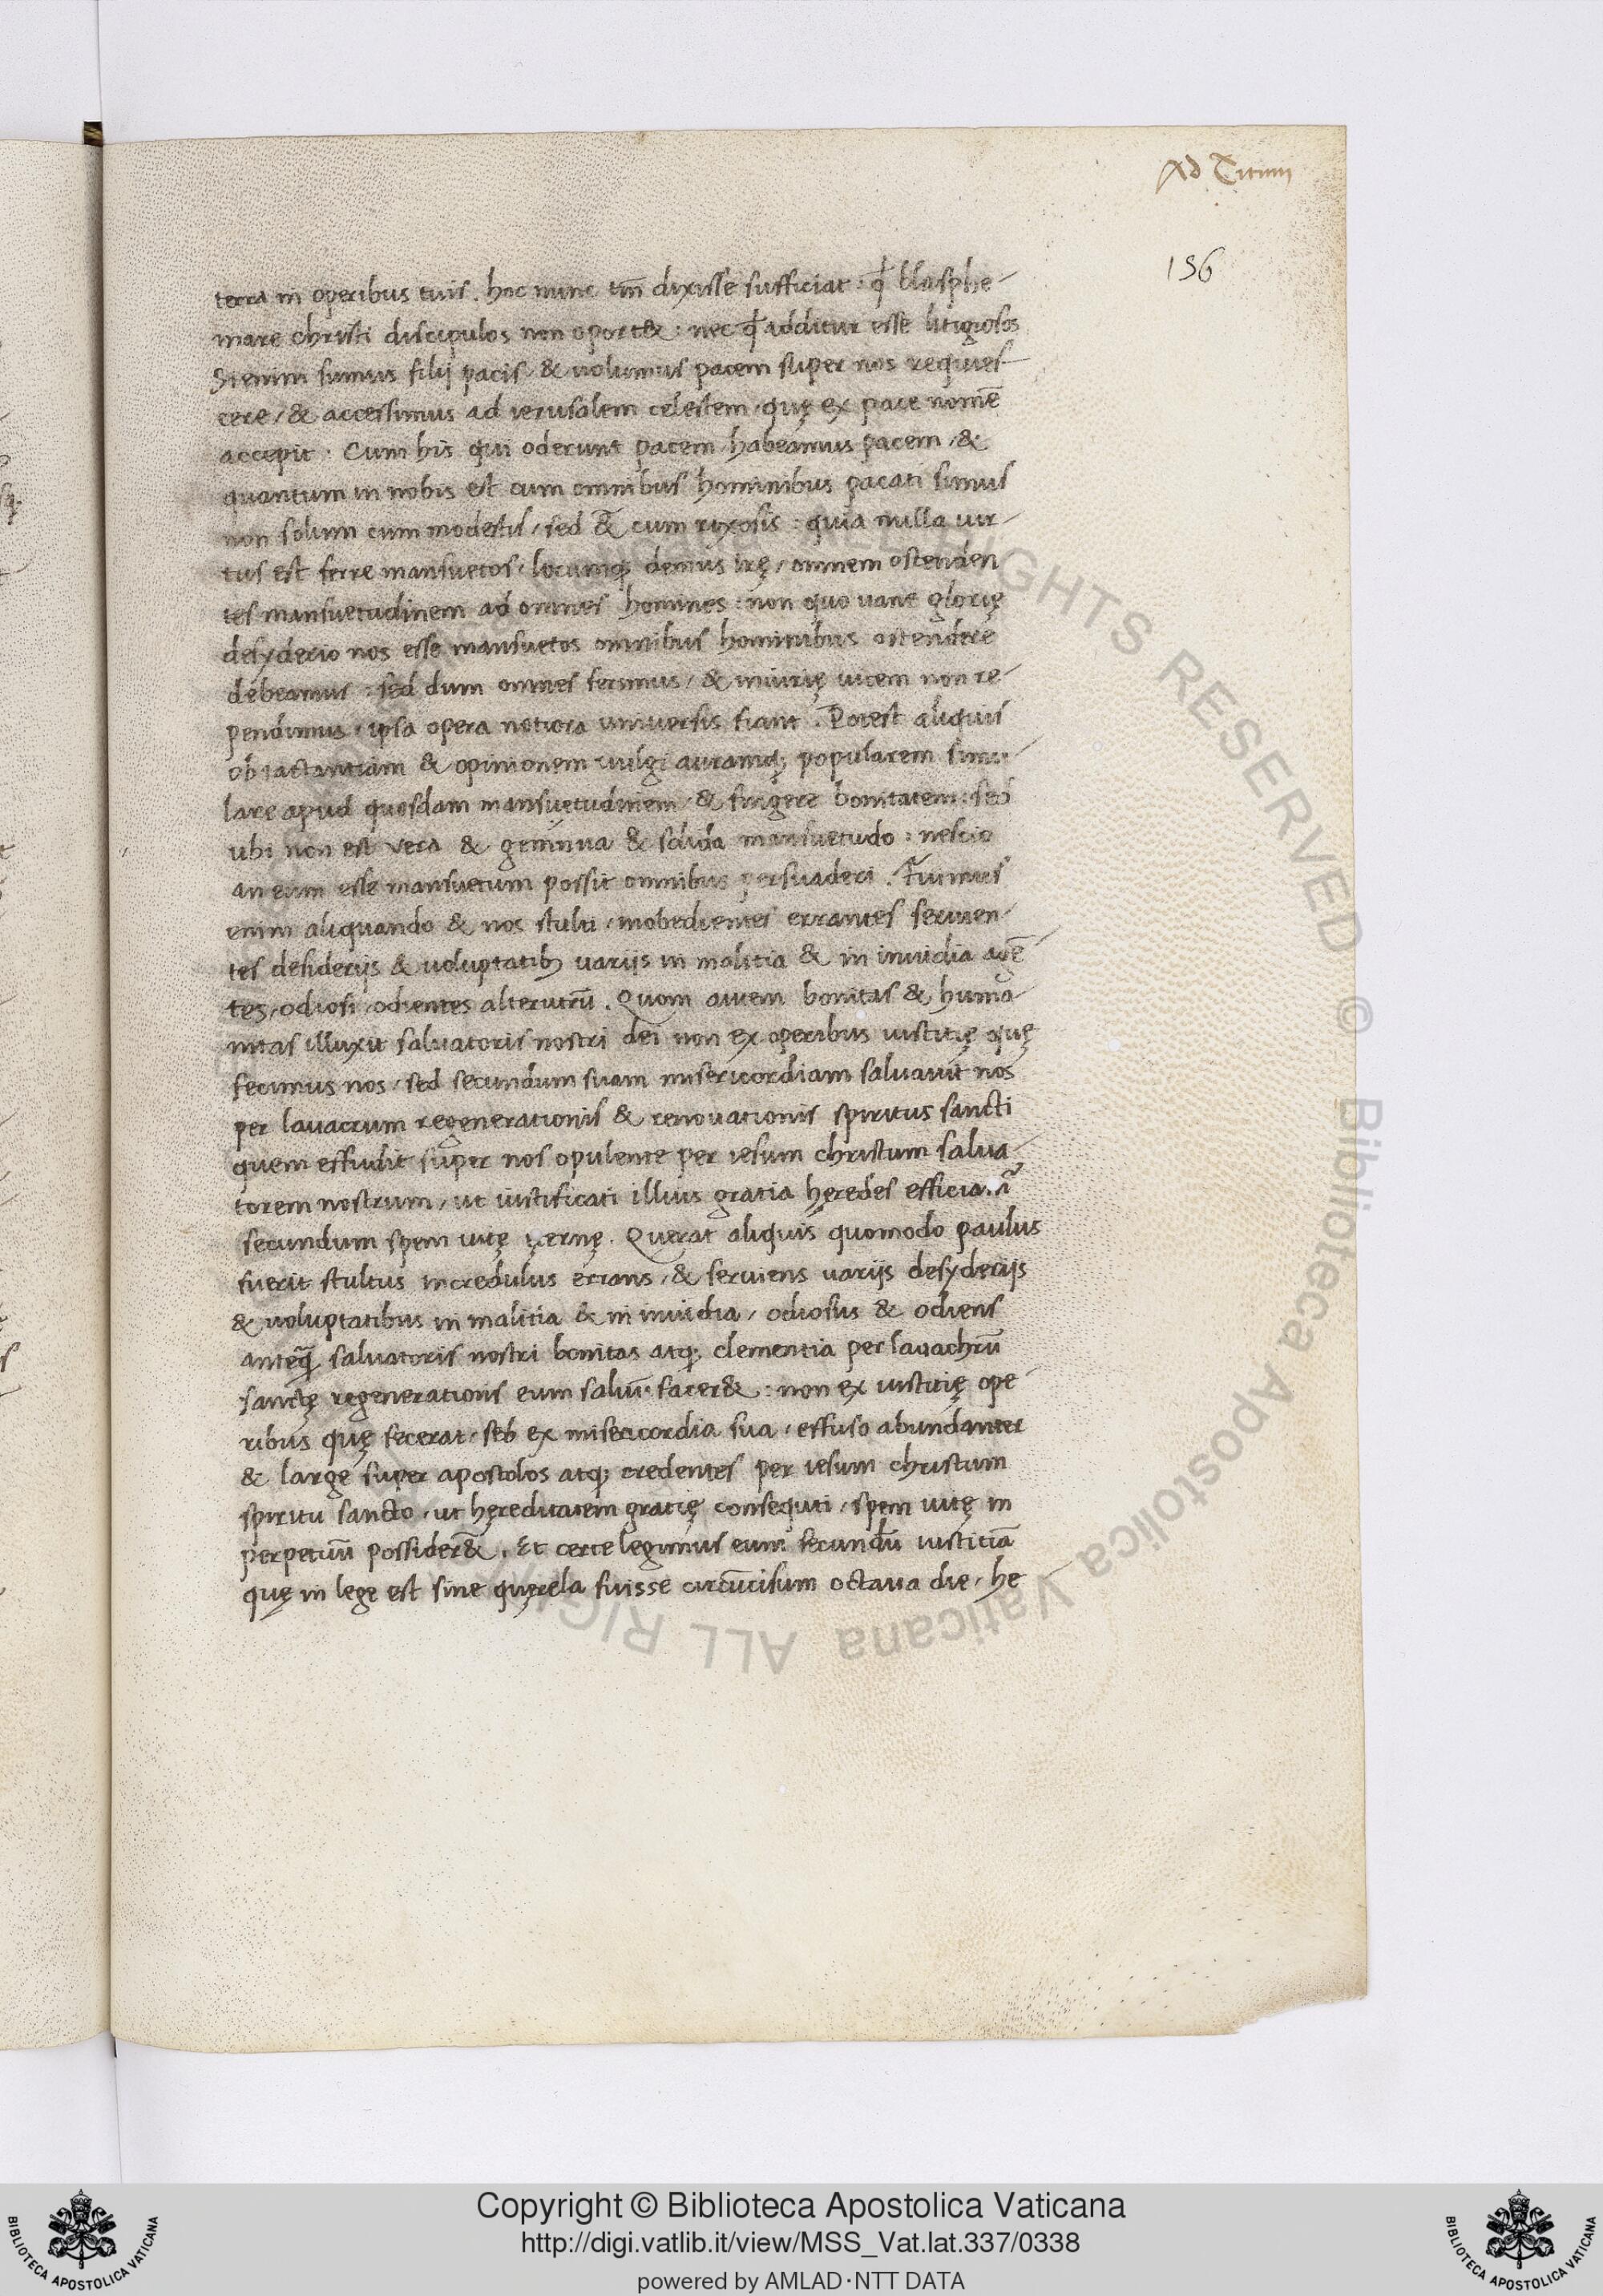 Ad Titum
156
terra in operibus tuis. hoc nunc tm̄ dixisse sufficiat: ꝙ blasphe-
mare christi discipulos non oport&: nec ꝙ additur esse litigiosos
Si enim sumus filij pacis & uolumus pacem super nos requies-
cere / & accessimus ad ierusalem celestem / quę ex pace nomē
accepit: Cum his qui oderunt pacem habeamus pacem / &
quantum in nobis est cum omnibus hominibus pacati simus
non solum cum modestis / sed &̄ cum rixosis: quia nulla uir-
tus est ferre mansuetos / locumq; demus irę / omnem ostenden
tes mansuetudinem ad omnes homines: non quo uane glorię
desyderio nos esse mansuetos omnibus hominibus ostendere
debeamus: sed dum omnes ferimus / & iniurię uicem non re-
pendimus / ipsa opera notiora uniuersis fiant. Potest aliquis
ob iactantiam & opinionem uulgi auramq; popularem simu-
lare apud quosdam mansuetudinem / & fingere bonitatem: sed
ubi non est vera & genuina & solida mansuetudo: nescio
an eum esse mansuetum possit omnibus persuaderi. Fuimus
enim aliquando & nos stulti / inobedientes errantes seruien-
tes desiderijs & uoluptatib; uarijs in malitia & in inuidia agē-
tes / odiosi / odientes alterutrū. Quom autem bonitas & huma-
nitas illuxit saluatoris nostri dei non ex operibus iustitię quę
fecimus nos / sed secundum suam misericordiam saluauit nos
per lauacrum regenerationis & renouationis spiritus sancti
quem effudit super nos opulente per iesum christum salua-
torem nostrum / ut iustificati illius gratia hęredes efficiamr̃
secundum spem uitę ęternę. Querat aliquis quomodo paulus
fuerit stultus incredulus errans / & seruiens uarijs desyderijs
& uoluptatibus in malitia & in inuidia / odiosus & odiens
anteq̄ saluatoris nostri bonitas atq; clementia per lauachrū
sanctę regenerationis eum saluū facer&: non ex iustitię ope-
ribus quę fecerat / sed ex misericordia sua / effuso abundanter
& large super apostolos atq; credentes per iesum christum
spiritu sancto / ut hęreditatem gratię consequti / spem uitę in
perpetuū possider&̄. Et certe legimus eum secundū iustitiā
quę in lege est sine quęrela fuisse circūcisum octaua die / he
Copyright © Biblioteca Apostolica Vaticana
http://digi.vatlib.it/view/MSS_Vat.lat.337/0338
powered by AMLAD·NTT DATA
BIBLIOTECA APOSTOLICA VATICANA
BIBLIOTECA APOSTOLICA VATICANA
ALL RIGHTS RESERVED © Biblioteca Apostolica Vaticana